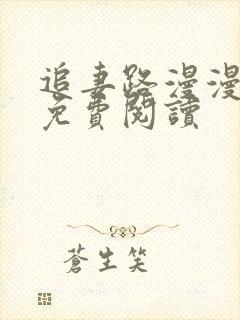 追妻路漫漫
免費閱讀
蒼生笑